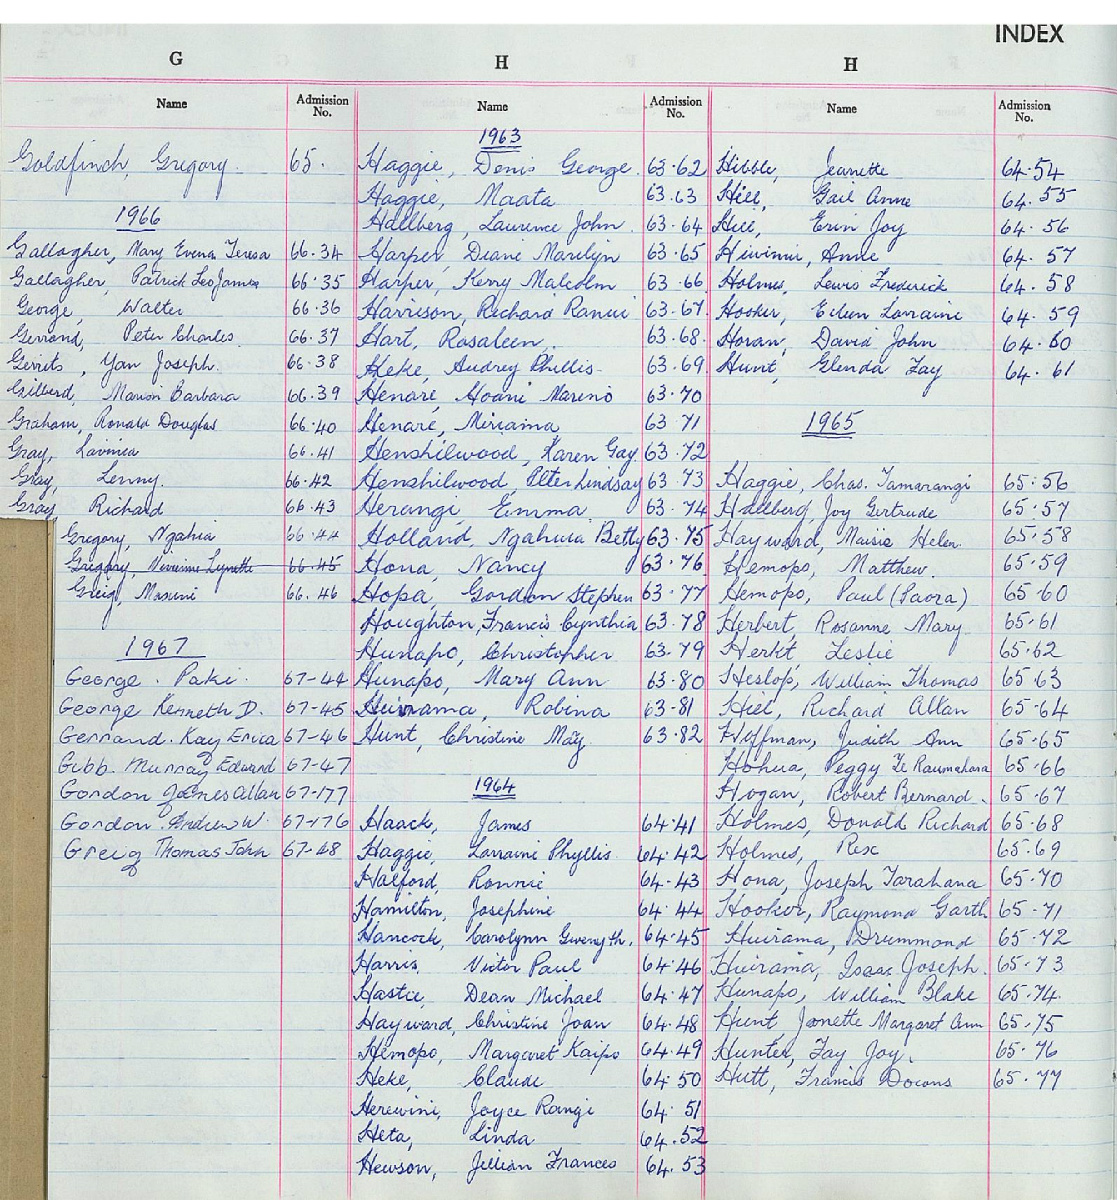 INDEX
G
Name Admission No.
Goldfinch, Gregory. 65.
1966
Gallagher, Mary Teresa 66.34
Gallagher, Patrick Leo James 66.35
George, Walter 66.36
Gerrand, Peter Charles. 66.37
Gerrits, Yan Joseph. 66.38
Gilberd, Marion Barbara 66.39
Graham, Ronald Douglas 66.40
Gray, Lavinia 66.41
Gray, Lenny. 66.42
Gray, Richard 66.43
Gregory, Ngahia 66.44
Gregory, Lynette 66.45
Greig, 66.46
1967
George. Paki. 67-44
George Kenneth D. 67-45
Gerrand. Kay Erica 67-46
Gibb. Murray Edward 67-47
Gordon James Allan 67-177
Gordon. Andrew W. 67-176
Greig Thomas John 67-48
H
Name Admission No.
1963
Haggie, Denis George. 63.62
Haggie, Maata 63.63
Hallberg, Laurence John. 63.64
Harper, Diane Marilyn 63.65
Harper, Kerry Malcolm 63.66
Harrison, Richard Ranui 63.67
Hart, Rosaleen. 63.68
Heke, Audrey Phyllis. 63.69
Henare, Hoani Mareno 63.70
Henare, Miriama 63 71
Henshilwood, Karen Gay 63.72
Henshilwood, Peter Lindsay 63.73
Herangi, Emma 63.74
Holland, Ngahuia Betty 63.75
Hona, Nancy 63.76
Hopa, Gordon Stephen 63.77
Houghton, Francis Cynthia 63.78
Hunapo, Christopher 63.79
Hunapo, Mary Ann 63.80
Huirama, Robina 63.81
Hunt, Christine May. 63.82
1964
Haack, James 64.41
Haggie, Lorraine Phyllis. 64.42
Halford, Ronnie 64.43
Hamilton, Josephine 64.44
Hancock, Carolynn Gwenyth. 64.45
Harris, Victor Paul 64.46
Hastie, Dean Michael 64.47
Hayward, Christine Joan 64.48
Hemopo, Margaret Kaipo 64.49
Heke, Claude 64.50
Herewini, Joyce Rangi 64.51
Heta, Linda 64.52
Hewson, Jillian Frances 64.53
H
Name Admission No.
Hibble, Jeanette 64.54
Hill, Gail Anne 64.55
Hill, Erin Joy 64.56
Hiwinui, Anne 64.57
Holmes, Lewis Frederick 64.58
Hooker, Eileen Lorraine 64.59
Horan, David John 64.60
Hunt, Glenda Fay 64.61
1965
Haggie, Chas. Tamarangi 65.56
Hallberg, Joy Gertrude 65.57
Hayward, Maisie Helen. 65.58
Hemopo, Matthew. 65.59
Hemopo, Paul (Paora) 65.60
Herbert, Rosanne Mary 65.61
Herkt Leslie 65.62
Heslop, William Thomas 65.63
Hill, Richard Allan 65.64
Hoffman, Judith Ann 65.65
Hohua, Peggy Te Raumahara 65.66
Hogan, Robert Bernard. 65.67
Holmes, Donald Richard 65.68
Holmes, Rex 65.69
Hona, Joseph Tarahana 65.70
Hooker, Raymond Garth 65.71
Huirama, Drummond 65.72
Huirama, Isaac Joseph. 65.73
Hunapo, William Blake 65.74.
Hunt Janette Margaret Ann 65.75
Hunter, Fay Joy. 65.76
Hutt, Francis 65.77